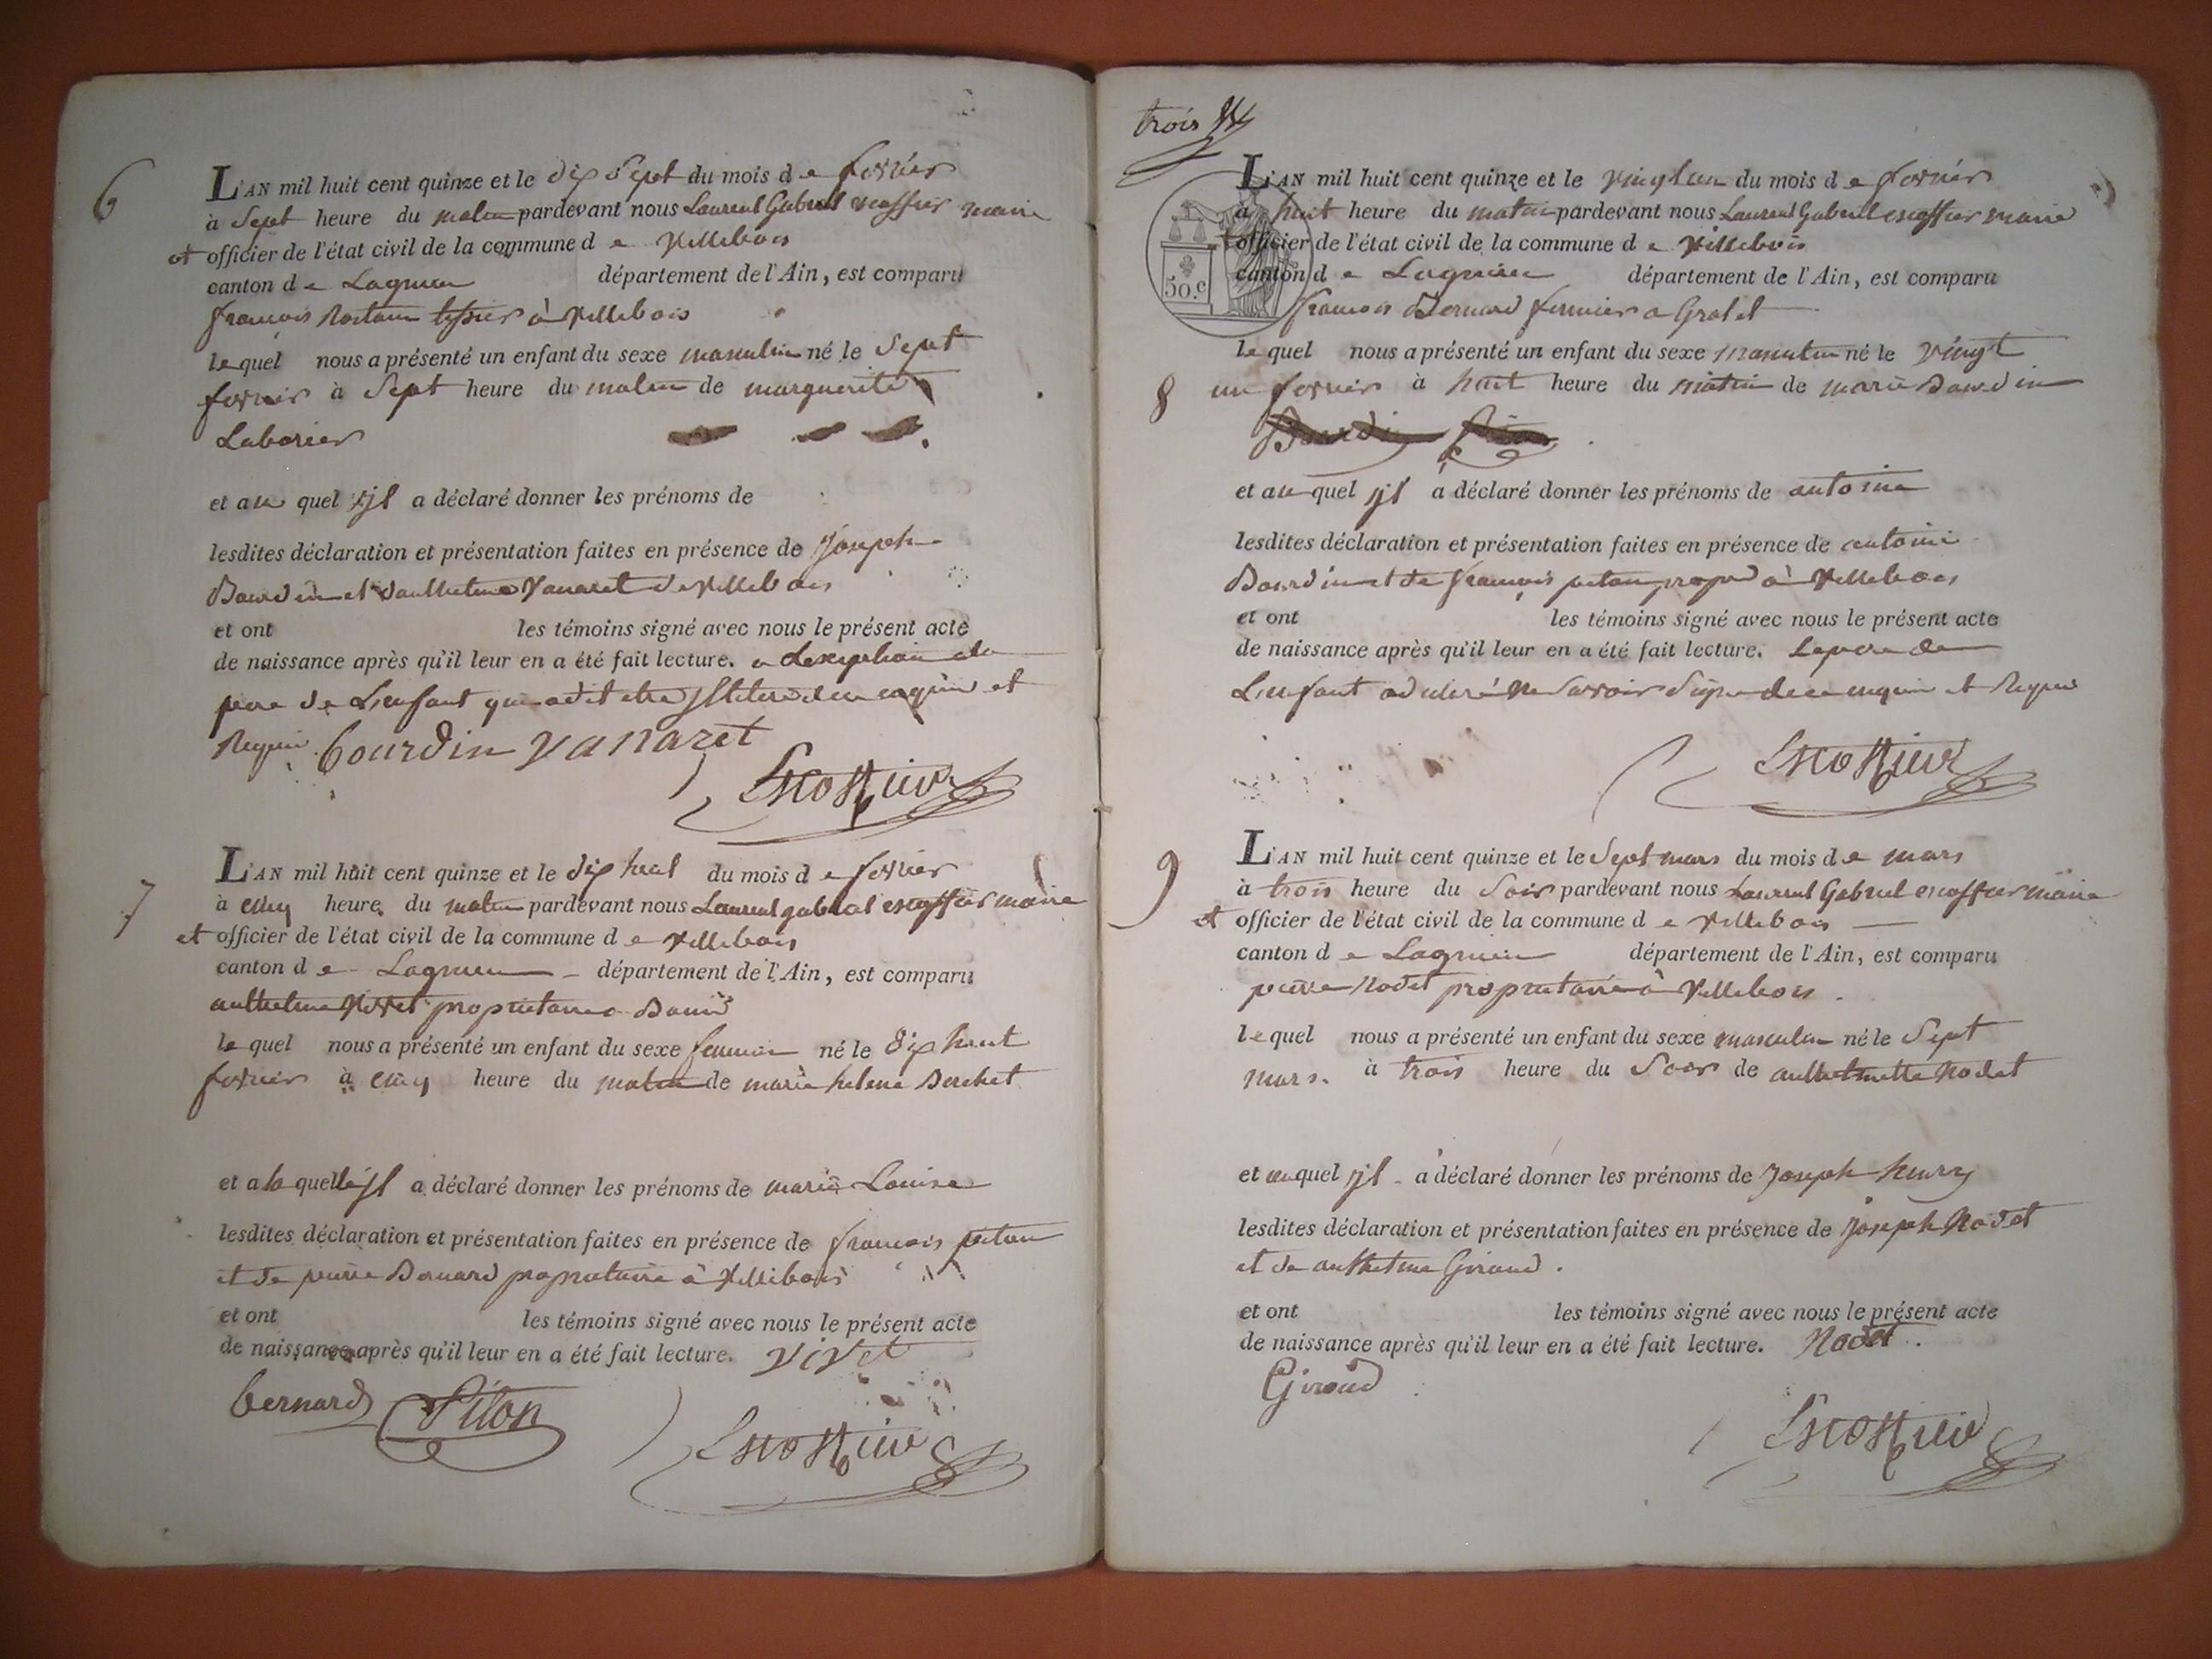 6
L'AN mil huit cent quinze et le dix sept du mois de fevrier
à Sept heure du matin pardevant nous Laurent Gabriel escoffier maire
et officier de l'état civil de la commune de Villebois
canton de Lagnieu département de l'Ain, est comparu
francois à Villebois
lequel nous a présenté un enfant du sexe masculin né le Sept
fevrier à Sept heure du matin de marguerite
et au quel yl a déclaré donner les prénoms de
lesdites déclaration et présentation faites en présence de Joseph
Bourdin et danthelme Vanaret de Villebois
et ont les témoins signé avec nous le présent acte
de naissance après qu'il leur en a été fait lecture. a Lexeption du
pere de Lenfant qui a dit etre de ce enquis et
Requis Bourdin Vanaret
Escoffier
7
L'AN mil huit cent quinze et le dix huit du mois de fevrier
à cinq heure du matin pardevant nous Laurent gabriel escoffier maire
et officier de l'état civil de la commune de Villebois
canton de Lagnieu département de l'Ain, est comparu
anthelme Vivet proprietaire a
lequel nous a présenté un enfant du sexe feminin né le dix huit
fevrier à cinq heure du matin de marie helene Berchet
et a la quelle yl a déclaré donner les prénoms de marie Louise
lesdites déclaration et présentation faites en présence de francois pitou
et de pierre Bernard proprietaire à Villebois
et ont les témoins signé avec nous le présent acte
de naissance après qu'il leur en a été fait lecture. Vivet
bernard Piton
Escoffier
trois
50.c
L'AN mil huit cent quinze et le vingt un du mois de fevrier
à huit heure du matin pardevant nous Laurent Gabriel escoffier maire
et officier de l'état civil de la commune de Villebois
canton de Lagnieu département de l'Ain, est comparu
francois Bernard fermier a
lequel nous a présenté un enfant du sexe masculin né le vingt
8
un fevrier à huit heure du matin de marie Bourdin
et au quel yl a déclaré donner les prénoms de antoine
lesdites déclaration et présentation faites en présence de antoine
Bourdin et de francois piton à Villebois
et ont les témoins signé avec nous le présent acte
de naissance après qu'il leur en a été fait lecture. Le pere de
Lenfant a declaré ne Savoir Signe de ce enquis et Requis
Escoffier
9
L'AN mil huit cent quinze et le Sept mars du mois de mars
à trois heure du Soir pardevant nous Laurent Gabriel escoffier maire
et officier de l'état civil de la commune de Villebois
canton de Lagnieu département de l'Ain, est comparu
pierre Nodet proprietaire à Villebois.
lequel nous a présenté un enfant du sexe masculin né le Sept
mars. à trois heure du Soir de anthelmette Nodet
et au quel yl a déclaré donner les prénoms de Joseph henry
lesdites déclaration et présentation faites en présence de Joseph Nodet
et de anthelme Giroud.
et ont les témoins signé avec nous le présent acte
de naissance après qu'il leur en a été fait lecture. Nodet.
Giroud
Escoffier